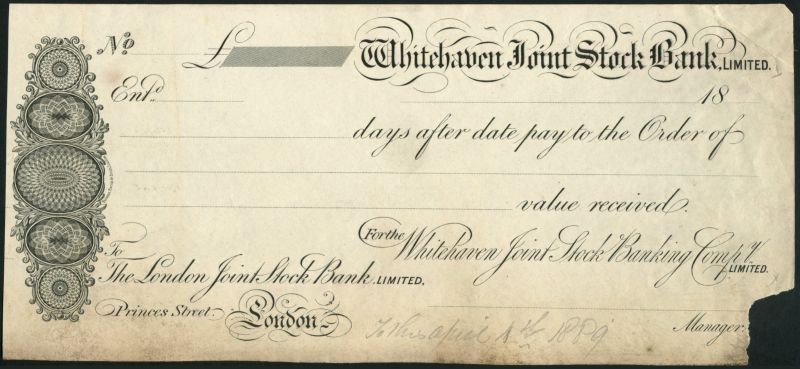 No £ Whitehaven Joint Stock Bank, LIMITED.
Entd 18
days after date pay to the Order of
value received.
For the Whitehaven Joint Stock Banking Compy. LIMITED.
To
The London Joint Stock Bank LIMITED.
Princes Street. London
april 1889
Manager.